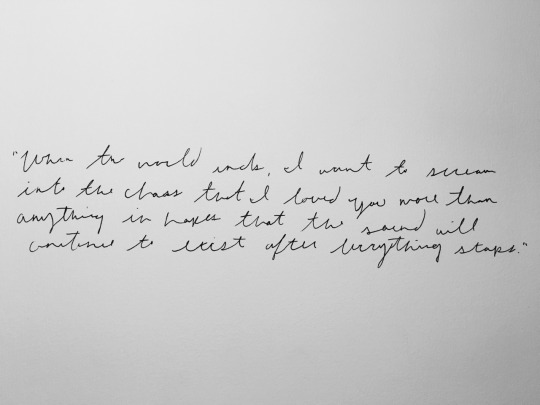 "When the world ends, I want to scream
into the chaos that I loved you more than
anything in hopes that the sound will
continue to exist after everything stops."